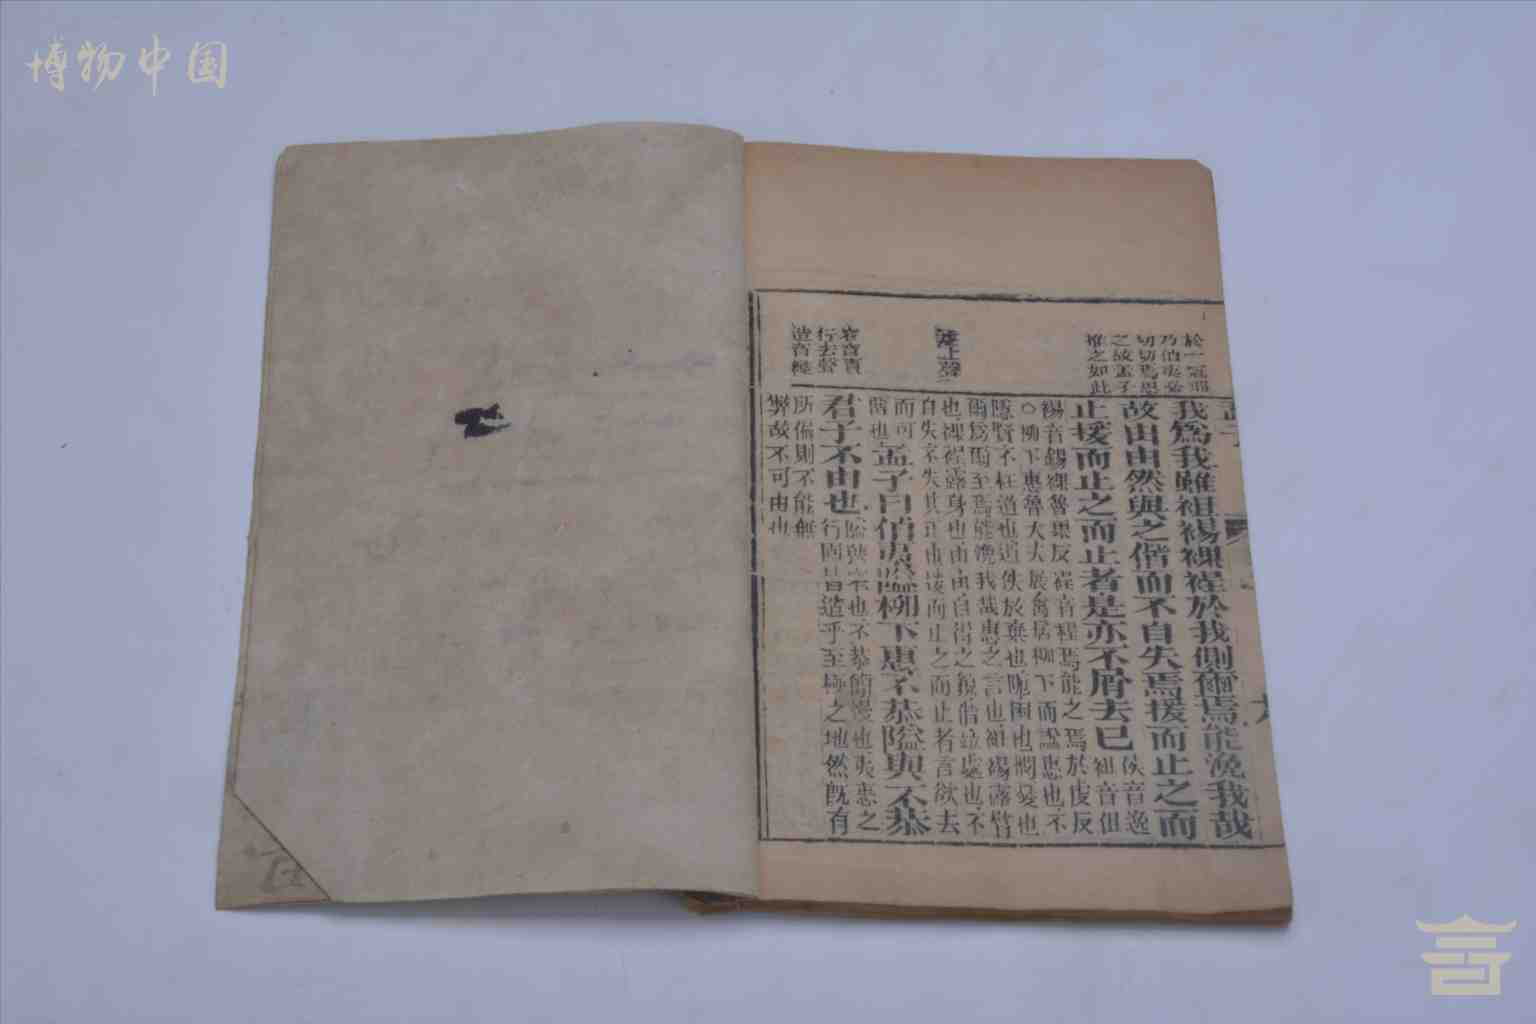 博物中国
於一冠耶
乃伯夷必
切切焉思
之故孟子
推之如此
上聲
窄音責
行去聲
造音糙
孟子
我為我雖袒裼裸裎於我側爾焉能浼我哉
故由由然與之偕而不自失焉援而止之而
止援而止之而止者是亦不屑去已
佚音逸
袒音但
裼音錫裸魯果反裎音程焉能之焉於虔反
○柳下惠魯大夫展禽居柳下而諡惠也不
隱賢不枉道也遺佚放棄也阨困也憫憂也
爾為爾至焉能浼我哉惠之言也袒裼露臂
也裸裎露身也由由自得之貌偕並處也不
自失不失其正也援而止之而止者言欲去
而可
留也
孟子曰伯夷隘柳下惠不恭隘與不恭
君子不由也
隘狹窄也不恭簡慢也夷惠之
行固皆造乎至極之地然既有
所偏則不能無
弊故不可由也